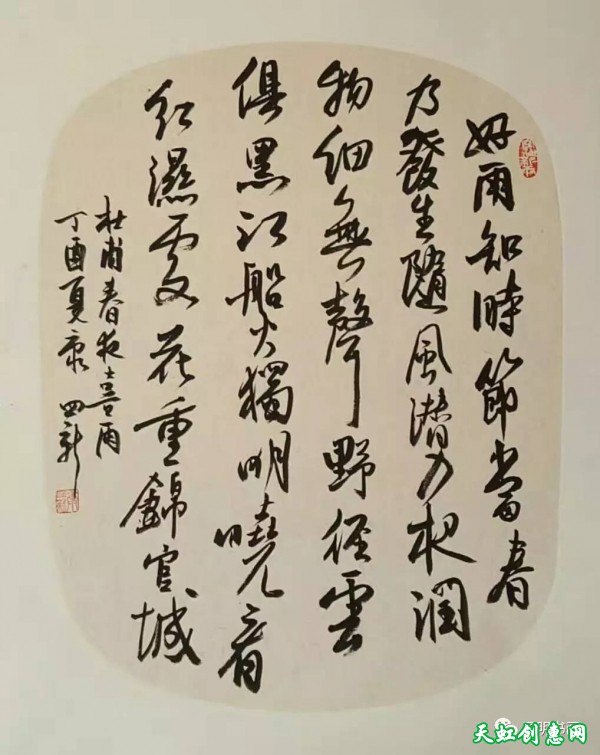 好雨知時節當春
乃發生隨風潜入夜潤
物細無聲野徑雲
俱黑江船火獨明曉看
紅濕處花重錦官城
杜甫春夜喜雨
丁酉夏康四新
天虹创惠网